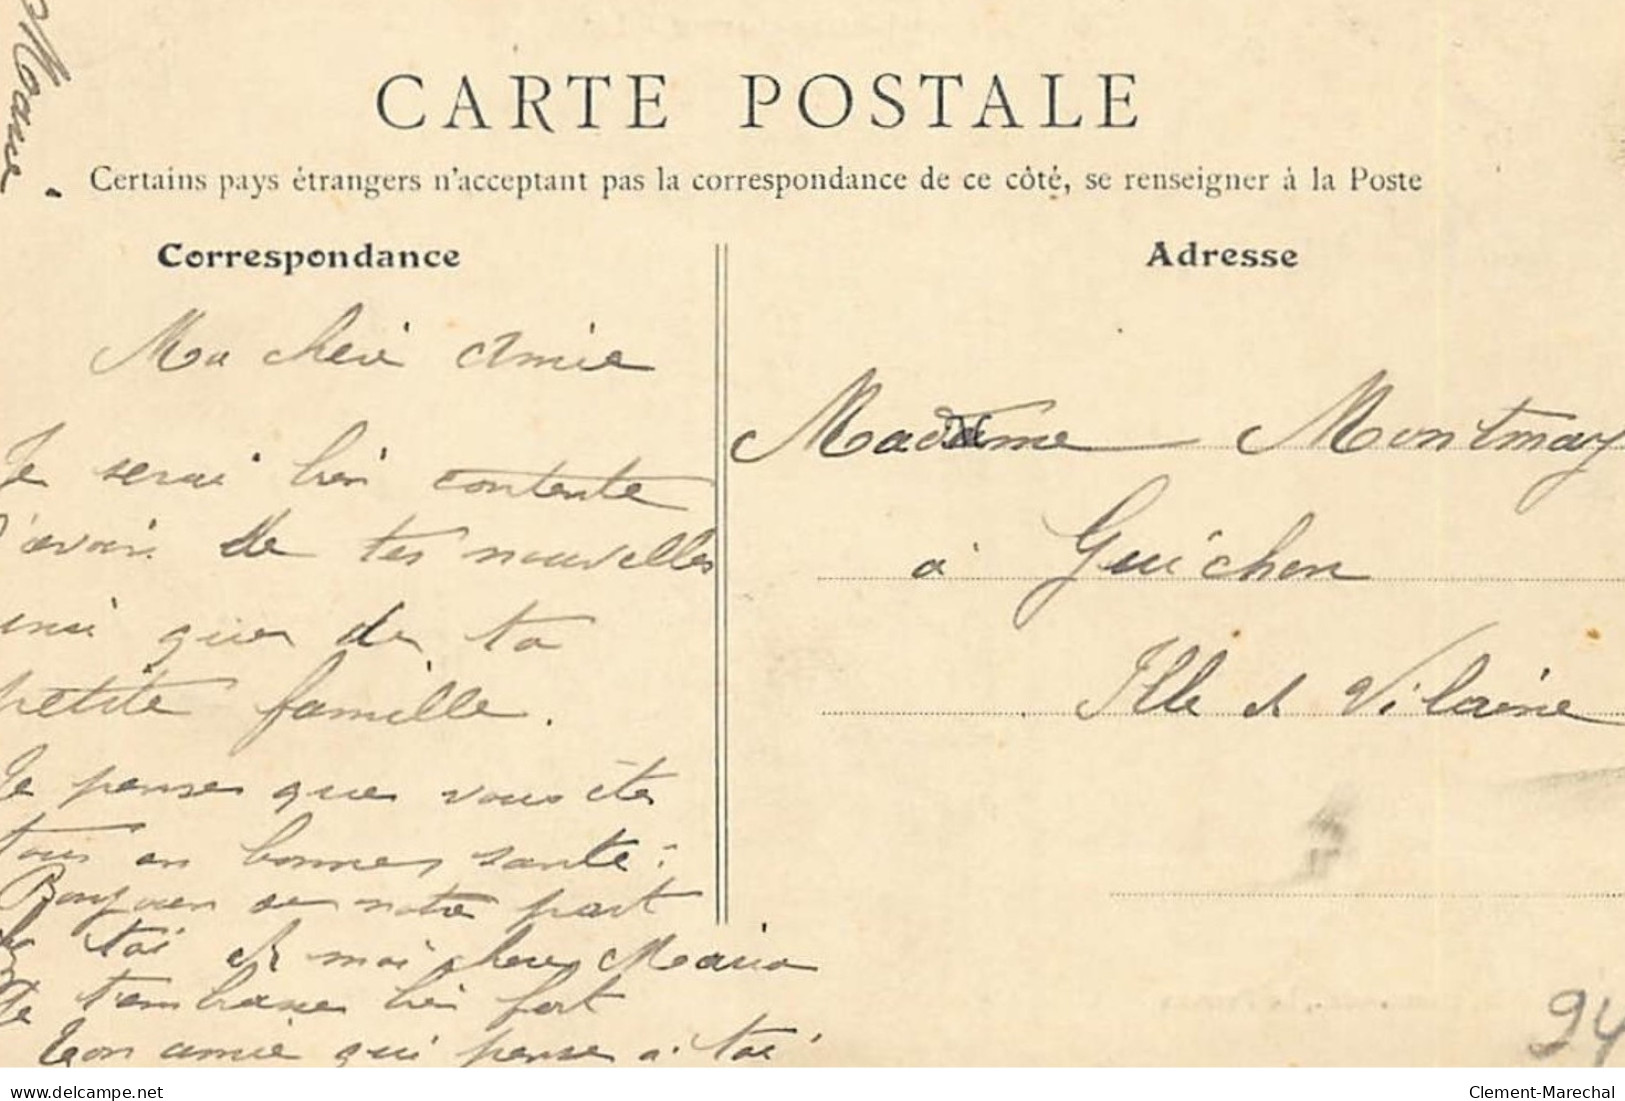 CARTE POSTALE
Certains pays étrangers n'acceptant pas la correspondance de ce côté, se renseigner à la Poste
Correspondance
Ma cheré Amie
Je serai bien contente
d'avoir de tes nouvelles
ainsi que de ta
petite famille.
Je penses que vous êtes
tous en bonnes santé.
Bonjour de notre part
à toi et moi chere Maria
Je t'embrasse bien fort
Ton amie qui pense a toi
Adresse
Madame Montmay
à Guichen
Ille et Vilaine
94
delcampe.net
Clement-Marechal